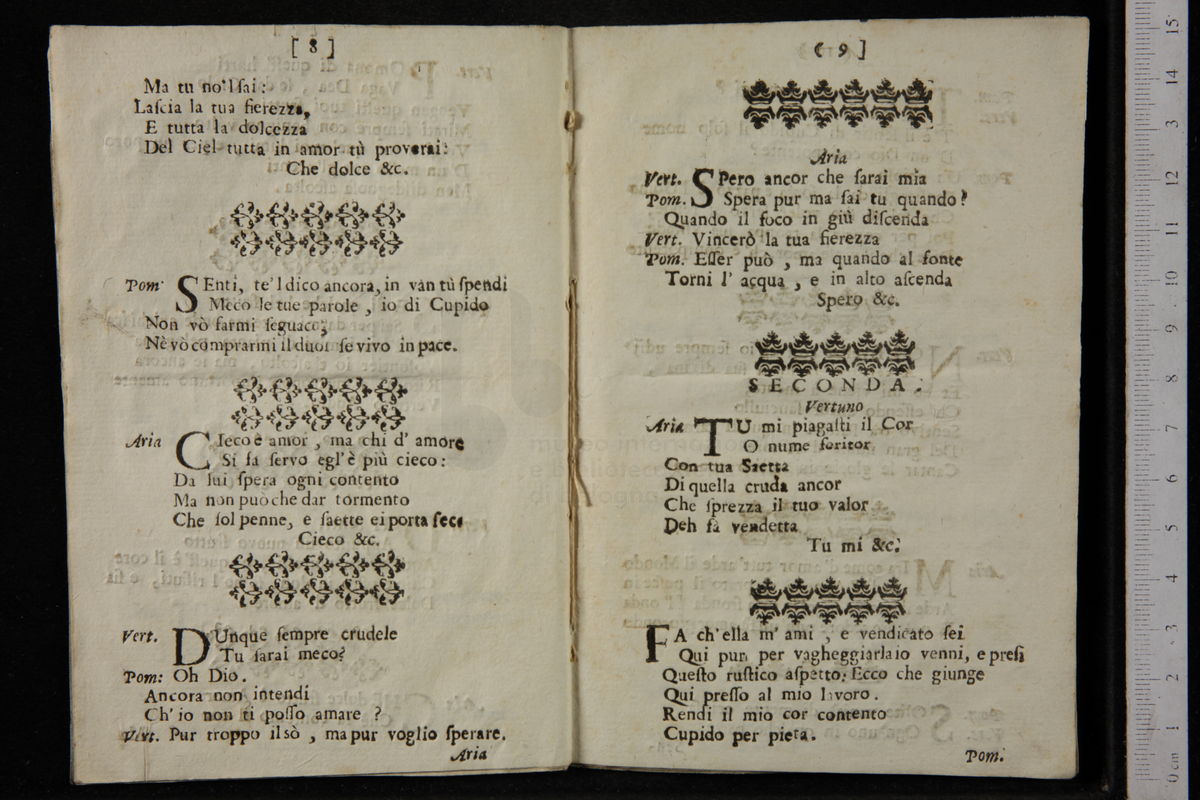 [ 8 ]
Ma tu no'l ſai:
Laſcia la tua fierezza,
E tutta la dolcezza
Del Ciel tutta in amor tù proverai:
Che dolce &c.
Pom. SEnti, te'l dico ancora, in van tù ſpendi
Meco le tue parole, io di Cupido
Non vò farmi ſeguace;
Nè vò comprarmi il duol ſe vivo in pace.
Aria CIeco è amor, ma chi d' amore
Si fa ſervo egl'è più cieco:
Da lui ſpera ogni contento
Ma non può che dar tormento
Che ſol penne, e ſaette ei porta ſeco
Cieco &c.
Vert. DUnque ſempre crudele
Tu ſarai meco?
Pom: Oh Dio.
Ancora non intendi
Ch' io non ti poſſo amare ?
Vert. Pur troppo il sò, ma pur voglio ſperare.
Aria
( 9 ]
Aria
Vert. SPero ancor che ſarai mia
Pom. Spera pur ma ſai tu quando?
Quando il foco in giù diſcenda
Vert. Vincerò la tua fierezza
Pom. Eſſer può, ma quando al fonte
Torni l' acqua, e in alto aſcenda
Spero &c.
SECONDA.
Vertuno
Aria TU mi piagaſti il Cor
O nume feritor
Con tua Saetta
Di quella cruda ancor
Che ſprezza il tuo valor
Deh fà vendetta
Tu mi &c.
FA ch'ella m' ami, e vendicato ſei
Qui pur, per vagheggiarla io venni, e preſi
Queſto ruſtico aſpetto: Ecco che giunge
Qui preſſo al mio lavoro.
Rendi il mio cor contento
Cupido per pieta.
Pom.
0 cm 1 2 3 4 5 6 7 8 9 10 11 12 13 14 15